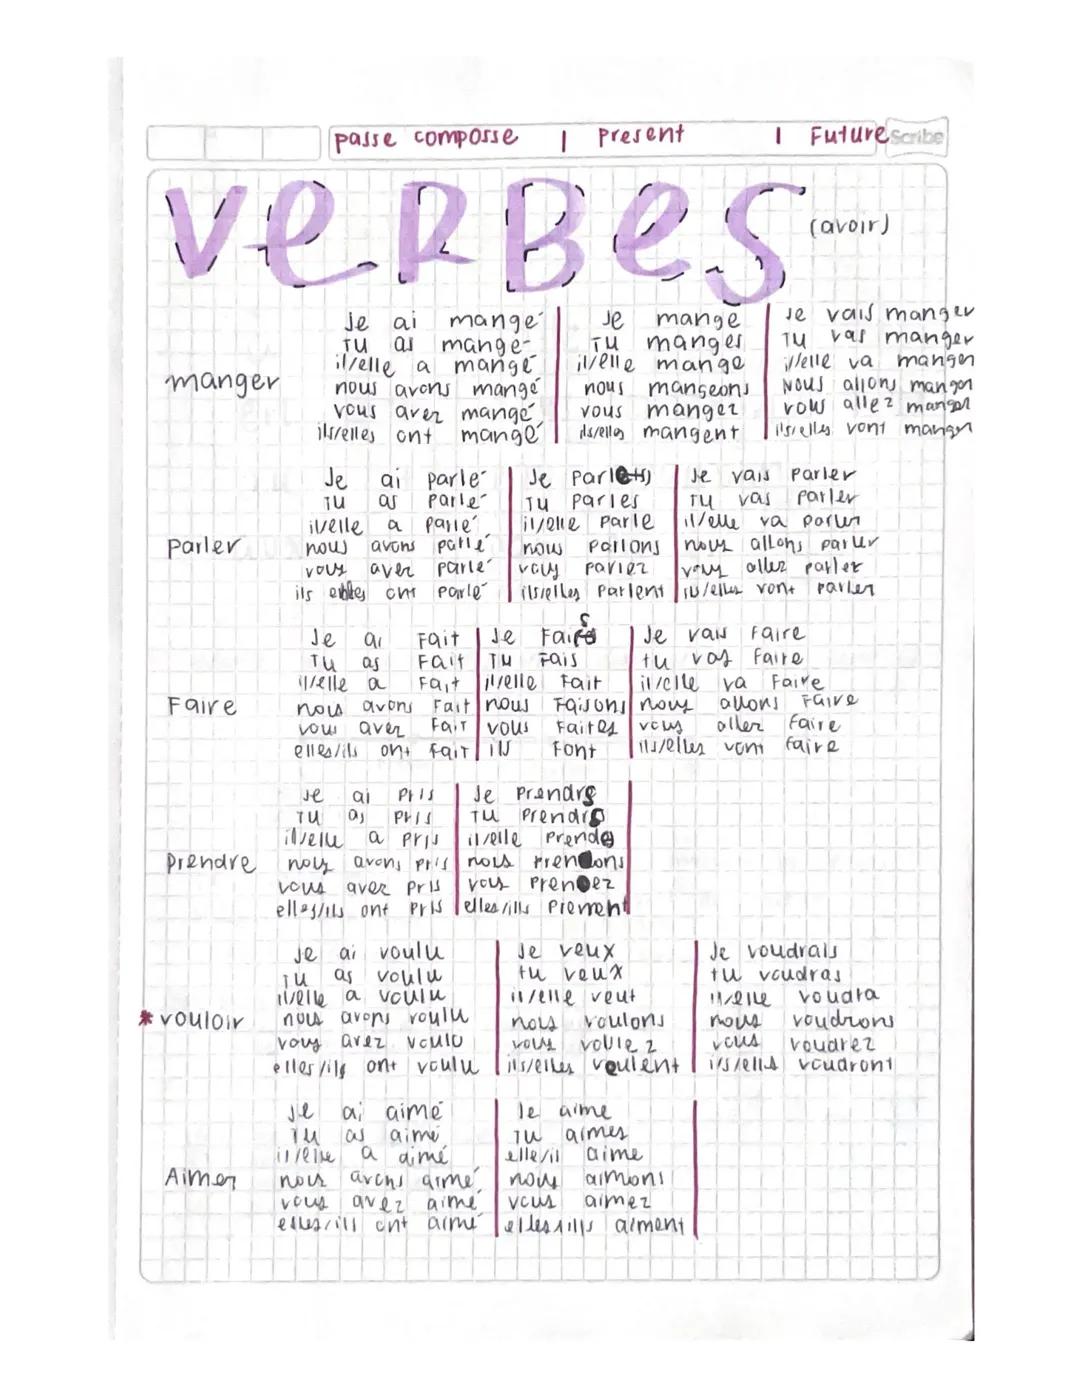 passe composse | Present | Future Scribe
VeRBeS (avoir)
Je ai mangé Je mange Je vais manger
Tu as mangé Tu manges Tu vas manger
il/elle a mangé il/elle mange il/elle va manger
manger nous avons mangé nous mangeons Nous allons manger
vous avez mangé vous mangez vous allez manger
ils/elles ont mangé ils/elles mangent ils/elles vont manger
Je ai parlé Je Parle Je vais Parler
Tu as Parlé Tu Parles Tu vas Parler
il/elle a Parlé il/elle Parle il/elle va parler
Parler nous avons parlé nous Parlons nous allons parler
vous avez parlé vous parlez vous allez parler
ils elles ont parlé ils/elles Parlent ils/elles vont parler
Je ai Fait Je Fais Je vais Faire
Tu as Fait Tu Fais tu vas Faire
il/elle a Fait il/elle Fait il/elle va Faire
Faire nous avons Fait nous Faisons nous allons Faire
vous avez Fait vous Faites vous allez Faire
elles/ils ont Fait ils Font ils/elles vont faire
Je ai Pris Je Prends
Tu as Pris Tu Prends
il/elle a Pris il/elle Prend
Prendre nous avons pris nous Prenons
vous avez Pris vous Prenez
elles/ils ont Pris elles/ils Prennent
Je ai voulu Je veux Je voudrais
Tu as voulu tu veux tu voudras
il/elle a voulu il/elle veut il/elle voudra
* vouloir nous avons voulu nous voulons nous voudrons
vous avez voulu vous voulez vous voudrez
elles/ils ont voulu ils/elles veulent ils/elles voudront
Je ai aimé Je aime
Tu as aimé Tu aimes
il/elle a aimé elle/il aime
Aimer nous avons aimé nous aimons
vous avez aimé vous aimez
elles/ils ont aimé elles/ils aiment